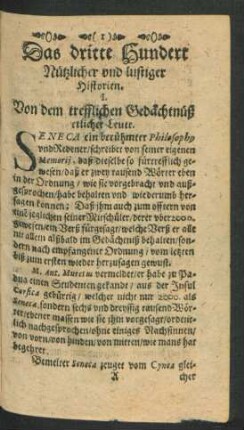 ( 1 )
Das dritte Hundert
Nützlicher vnd lustiger
Historien.
1.
Von dem trefflichen Gedächtnüß
etlicher Leute.
SENECA ein berühmter Philosophus
vnd Redner/ schreibet von seiner eigenen
Memorij, daß dieselbe so fürtrefflich ge-
wesen/ daß er zwey tausend Wörter eben
in der Ordnung/ wie sie vorgebracht vnd auß-
gesprochen/ habe behalten vnd wiederumb her-
sagen können: Daß ihm auch zum öfftern von
eind jeglichen seiner Mitschüler/ derer vber 2000.
gewesen/ ein Verß fürgesagt/ welche Verß er alle
mit allein allsbald im Gedächtnüß behalten/ son-
dern nach empfangener Ordnung/ vom letzten
biß zum ersten wieder herzusagen gewust.
M. Ant. Muretus vermeldet/ er habe zu Pa-
dua einen Studenten gekandt/ aus der Insul
Corsica gebürtig/ welcher nicht nur 2000. als
Seneca, sondern sechs vnd dreyssig tausend Wör-
ter/ ebener massen wie sie ihm vorgesagt/ ordent-
lich nachgesprochen/ ohne einiges Nachsinnen/
von vorn/ von hinden/ von mitten/ wie mans hat
begehret.
Bemelter Seneca zeuget vom Cynea glei-
A cher